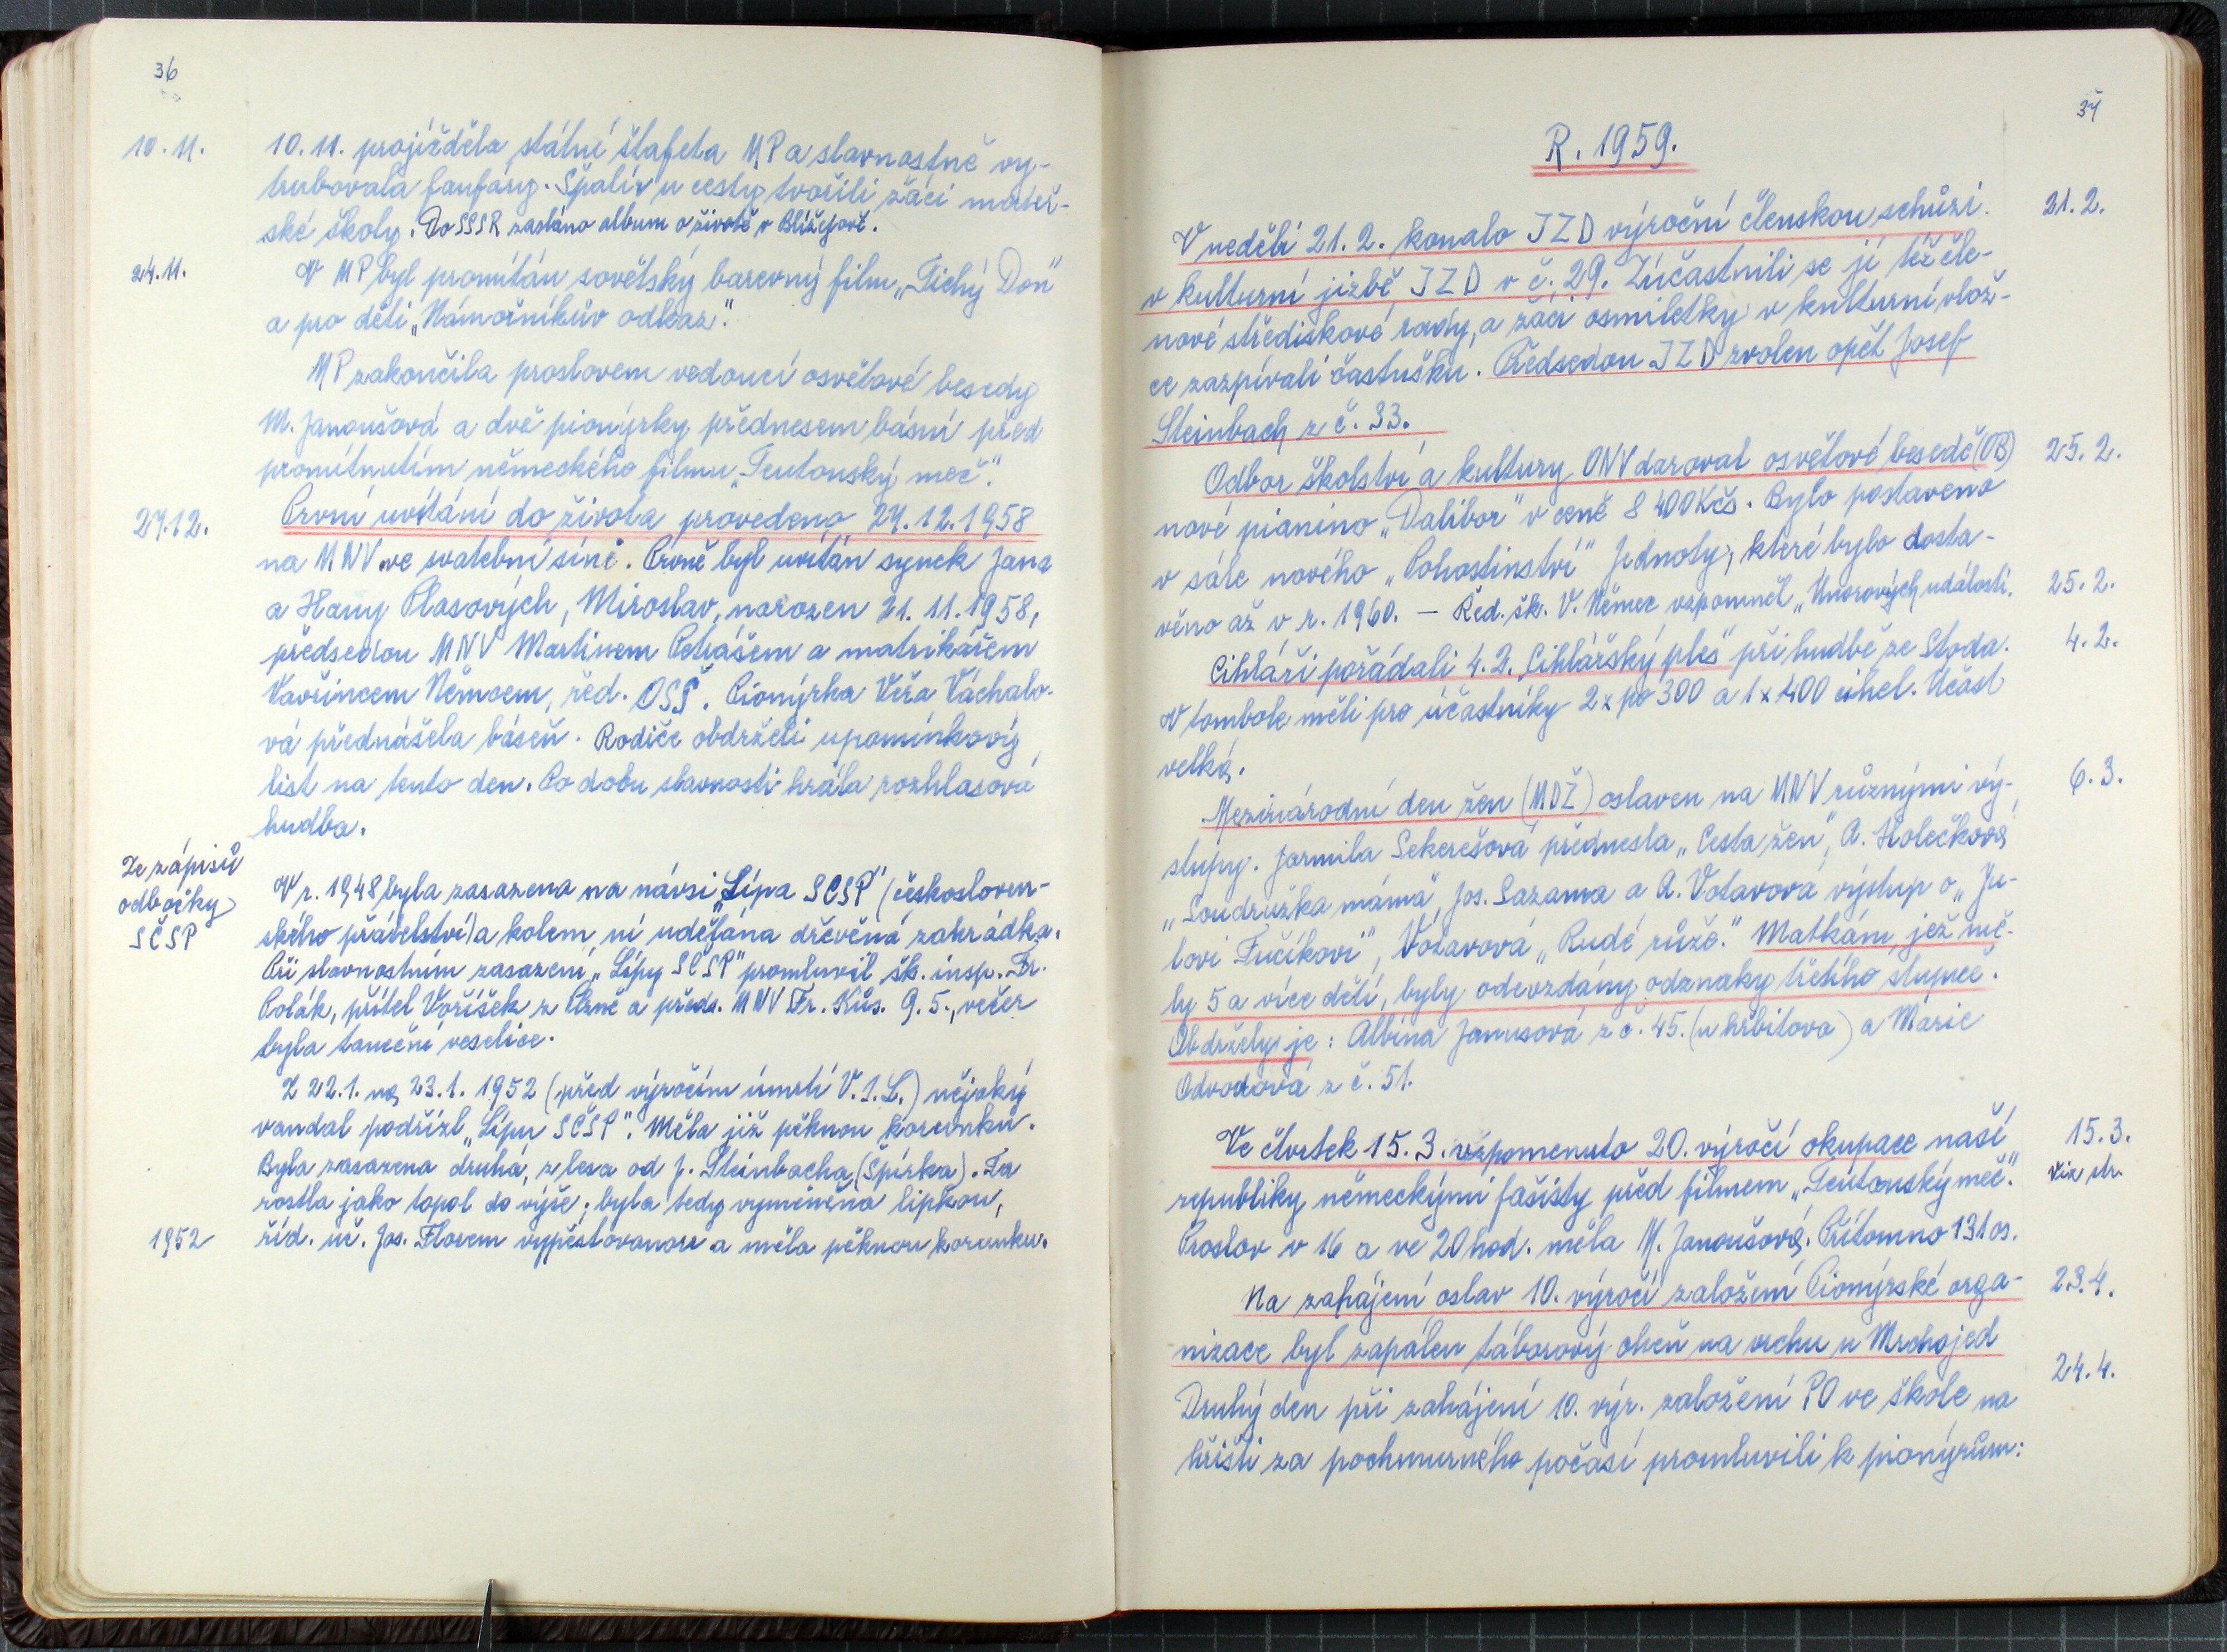 36
10.11.
10.11. projížděla státní štafeta MP a slavnostně vy-
trubovala fanfáry. Špalír u cesty tvořili žáci mateř-
ské školy. Do SSSR zasláno album o životě v Blížejově.
24.11.
V MP byl promítán sovětský barevný film „Tichý Don“
a pro děti „Námořníkův odkaz“.
MP zakončila proslovem vedoucí osvětové besedy
M. Janoušová a dvě pionýrky přednesem básní před
promítnutím německého filmu „Teutonský meč“.
27.12.
První uvítání do života provedeno 27.12.1958
na MNV ve svatební síni. Prvně byl uvítán synek Jana
a Hany Plasových, Miroslav, narozen 21. 11. 1958,
předsedou MNV Martinem Petrášem a matrikářem
Vavřincem Němcem, řed. OSŠ. Pionýrka Věra Váchalo-
vá přednášela báseň. Rodiče obdrželi upomínkový
list na tento den. Po dobu slavnosti hrála rozhlasová
hudba.
Ze zápisů
odbočky
SČSP
V r. 1948 byla zasazena na návsi „Lípa SČSP“ (českosloven-
ského přátelství) a kolem ní udělána dřevěná zahrádka.
Při slavnostním zasazení „Lípy SČSP“ promluvil šk. insp. Fr.
Polák, přítel Voříšek z Plzně a předs. MNV Fr. Kůs. 9. 5., večer
byla taneční veselice.
Z 22.1. na 23.1. 1952 (před výročím úmrtí V. I. L.) nějaký
vandal podřízl „Lípu SČSP“. Měla již pěknou korunku.
Byla zasazena druhá, z lesa od J. Steinbacha (Špirka). Ta
rostla jako topol do výše; byla tedy vyměněna lipkou,
1952
říd. uč. Jos. Florem vypěstovanou a měla pěknou korunku.
37
R. 1959.
V neděli 21. 2. konalo JZD výroční členskou schůzi
21. 2.
v kulturní jizbě JZD v č. 29. Zúčastnili se jí též čle-
nové střediskové rady, a žáci osmiletky v kulturní vlož-
ce zazpívali častušku. Předsedou JZD zvolen opět Josef
Steinbach z č. 33.
Odbor školství a kultury ONV daroval osvětové besedě (OB)
25. 2.
nové pianino „Dalibor“ v ceně 8 400 Kčs. Bylo postaveno
v sále nového „Pohostinství“ Jednoty, které bylo dosta-
věno až v r. 1960. — Řed. šk. V. Němec vzpomněl „Únorových událostí.
25. 2.
Cihláři pořádali 4. 2. „Cihlářský ples“ při hudbě ze Stoda.
4. 2.
V tombole měli pro účastníky 2 x po 300 a 1 x 400 cihel. Účast
velká.
Mezinárodní den žen (MDŽ) oslaven na MNV různými vý-
6. 3.
stupy. Jarmila Sekerešová přednesla „Cesta žen“, A. Holečková
„Soudružka máma“, Jos. Sazama a A. Votavová výstup o „Ju-
lovi Fučíkovi“, Votavová „Rudé růže.“ Matkám, jež mě-
ly 5 a více dětí, byly odevzdány odznaky třetího stupně.
Obdržely je: Albína Janusová z č. 45. (u hřbitova) a Marie
Odvodová z č. 51.
Ve čtvrtek 15. 3. vzpomenuto 20. výročí okupace naší
15. 3.
republiky německými fašisty před filmem „Teutonský meč“.
viz str.
Proslov v 16 a ve 20 hod. měla M. Janoušová. Přítomno 131 os.
Na zahájení oslav 10. výročí založení Pionýrské orga-
23. 4.
nizace byl zapálen táborový oheň na vrchu u Mrchojed
24. 4.
Druhý den při zahájení 10. výr. založení PO ve škole na
hřišti za pochmurného počasí promluvili k pionýrům: